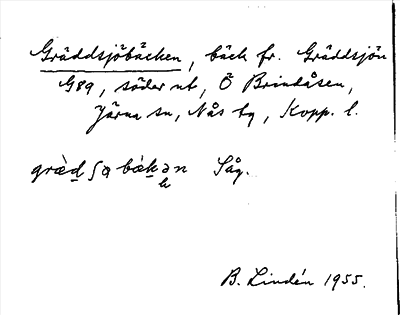 Gräddsjöbäcken, bäck fr. Gräddsjön
G89, söder ut, Ö Brindåsen,
Järna sn, Nås tg, Kopp. l.
græ̀d ʃø bæ̀kən Såg.
B. Lindén 1955.